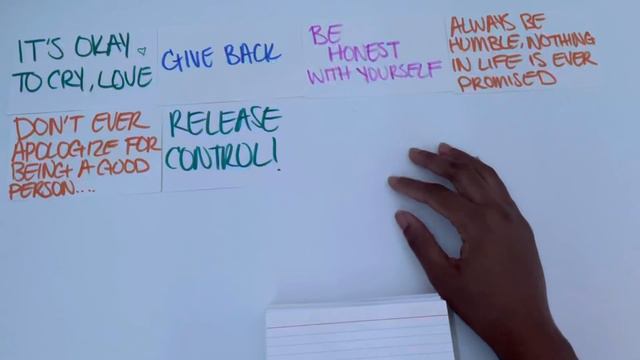 IT'S OKAY
TO CRY, LOVE
GIVE BACK
BE
HONEST
WITH YOURSELF
ALWAYS BE
HUMBLE, NOTHING
IN LIFE IS EVER
PROMISED
DON'T EVER
APOLOGIZE FOR
BEING A GOOD
PERSON....
RELEASE
CONTROL!